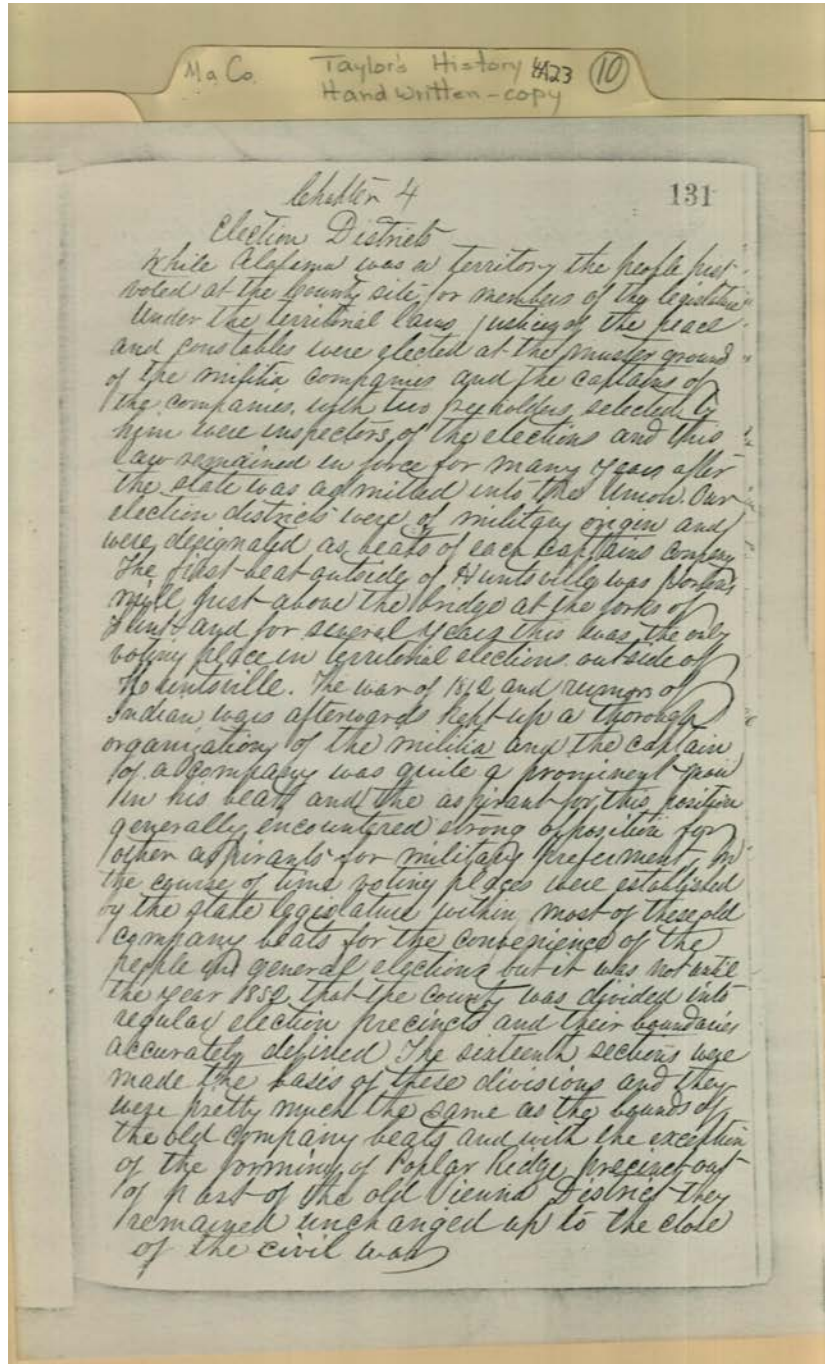 Ma Co. Taylor's History 4A23 10
Handwritten-copy
131
Chapter 4
Election Districts
While Alabama was a territory the people first
voted at the County site, for members of the legislature
Under the territorial laws justices of the peace
and constables were elected at the muster ground
of the militia companies and the captains of
the companies, with two freeholders selected by
him were inspectors, of the elections and this
law remained in force for many years after
the state was admitted into the Union. Our
election districts were of military origin and
were designated as beats of each captains company
The first beat outside of Huntsville was
mill just above the bridge at the forks of
Flint and for several years this was the only
voting place in territorial elections outside of
Huntsville. The war of 1812 and rumors of
Indian wars afterwards kept up a thorough
organization of the militia and the captain
of a company was quite a prominent man
in his beat and the aspirant for this position
generally encountered strong opposition for
other aspirants for military preferment, in
the course of time voting places were established
by the state legislature within most of these old
company beats for the convenience of the
people in general elections but it was not until
the year that the County was divided into
regular election precincts and their boundaries
accurately defined The sixteenth sections were
made the basis of these divisions and they
were pretty much the same as the bounds of
the old company beats and with the exception
of the forming of Poplar Ridge precinct out
of part of the old Vienna District they
remained unchanged up to the close
of the civil war